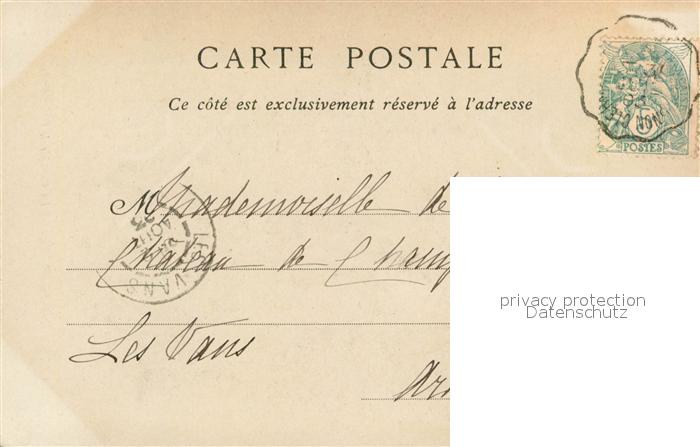 CARTE POSTALE
Ce côté est exclusivement réservé à l'adresse
POSTES
Mademoiselle de
Château de Champ
LES VANS
AOUT
privacy protection
Datenschutz
Les Vans
Ar